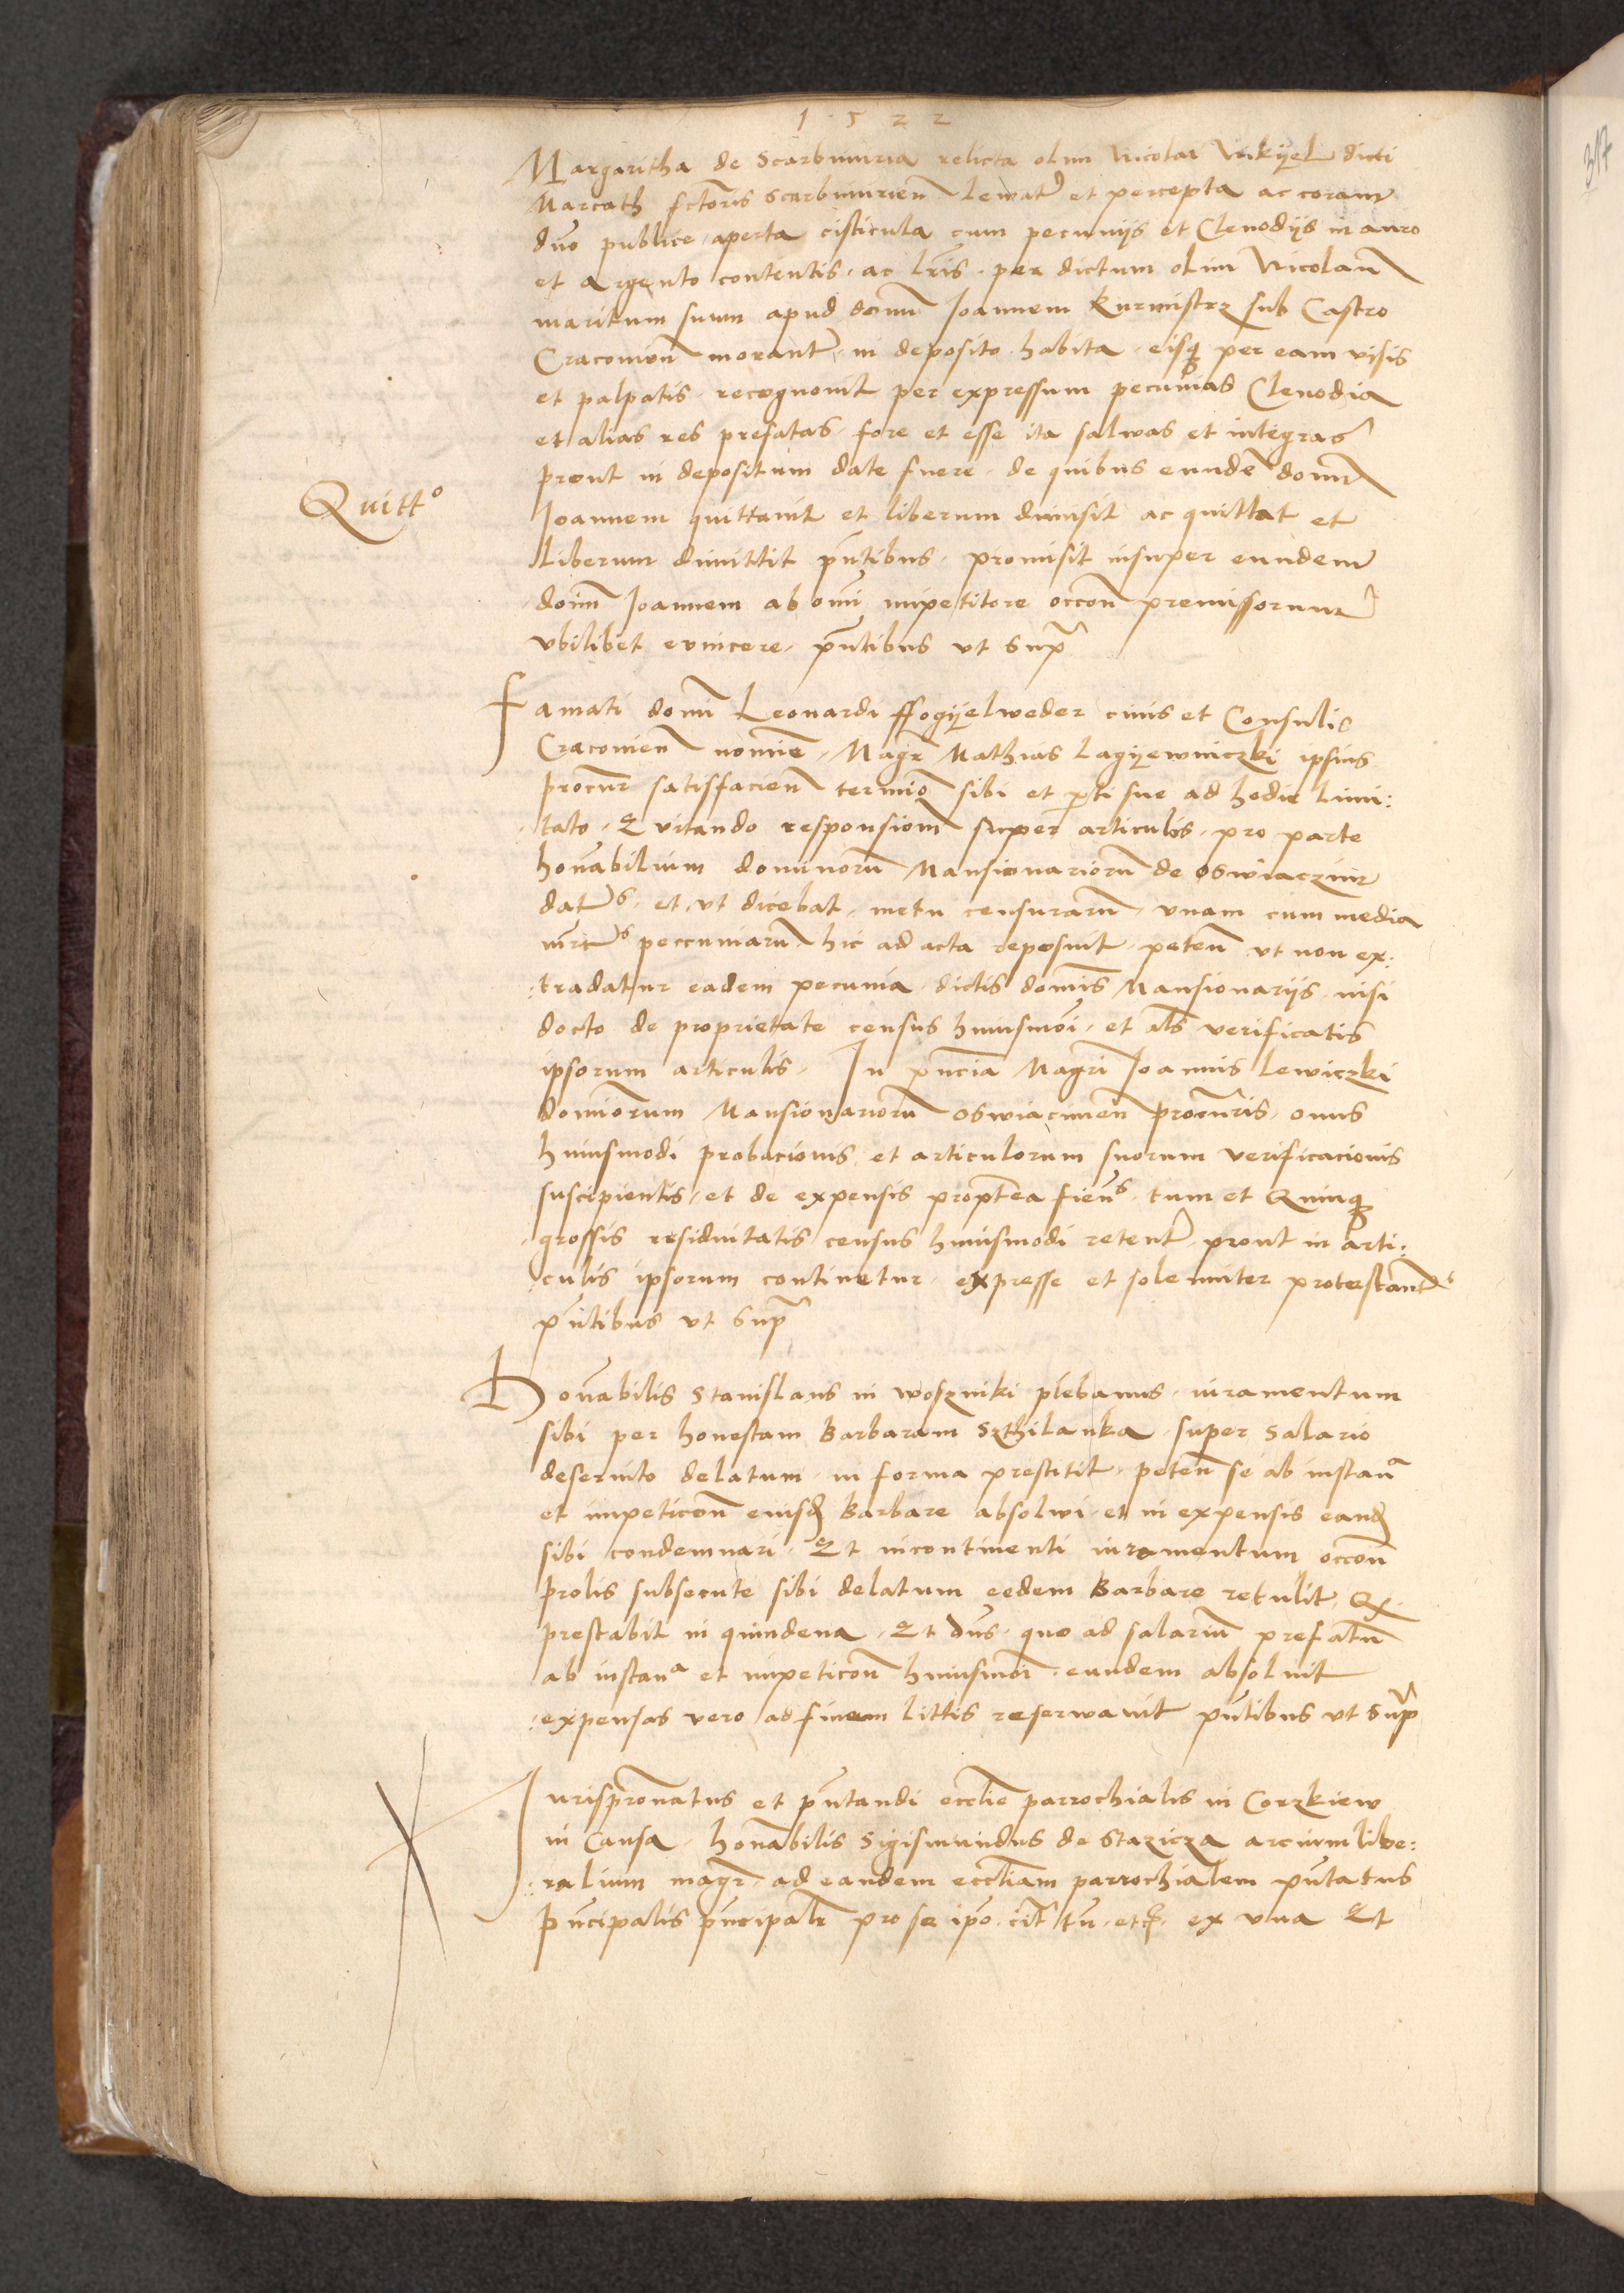 1522
Margaritha de Scarbimiria relicta olim Nicolai Nikyel dicti
Marcath sctoris Scarbimirien lewat et percepta ac coram
dno publice aperta cisticula cum pecunijs et Clenodijs in auro
et argento contentis, ac lris per dictum olim Nicolau
maritum suum apud domu Joannem Kurmistrz sub Castro
Cracovien morant in deposito habita, eisq per eam visis
et palpatis, recognovit per expressum pecunias Clenodia
et alias res prefatas, fore et esse ita salwas et integras
prout in depositum date fuere, de quibus eunde domi
Quitto
Joannem quittavit et liberum dimisit ac quittat et
liberum dimittit pntibus, promisit insuper eundem
doim Joannem ab omi impetitore occon premissorum
ubilibet evincere, pntibus ut supra
Famati domi Leonardi ffogijelweder civis et Consulis
Cracovien nomie, Magr Mathias Lagyewniczki ipsius
procur satisfacien termino sibi et pti sue ad hodie limi:
tato, Et vitando responsiom super articulis, pro parte
honabilium dominoru Mansionarioru de Oswiaczim
dat, et ut dicebat, metu censuraru, unam cum media
mrc peccuniaru hic ad acta reposuit, peten ut non ex:
:tradatur eadem pecunia dictis domis Mansionarijs, nisi
docto de proprietate census huiusmoi, et als verificatis
ipsorum articulis. In pncia Magri Joannis Lewiczki
domiorum Mansionarioru Oswiacimen procuris, onus
huiusmodi probacionis et articulorum suorum verificacionis
suscipientis, et de expensis proptea fien, tum et Quinq
grossis residuitatis census huiusmodi retent, prout in arti:
:culis ipsorum continetur, expresse et solemniter protestant
pntibus ut supra
Honabilis Stanislaus in Woszniki plebanus, iuramentum
sibi per honestam Barbaram Szthilanka, super Salario
deservito delatum, in forma prestitit, peten se ab instan
et impeticon eiusd Barbare absolwi, et in expensis eand
sibi condemnari. Et incontinenti iuramentum occon
prolis subsecute sibi delatum eedem Barbare retulit, Q
prestabit in quindena, Et dns quo ad salariu prefatu
ab instana et impeticon huiusmoi eundem absolvit
:expensas vero ad finem littis reserwavit pntibus ut supra
Jurispronatus et pntandi ecclie parrochialis in Corzkiew
in Causa, honabilis Sigismundus de Stazicza arcium libe:
:ralium magr, ad eandem eccliam parrochialem pntatus
pncipalis pncipalr pro se ipo, cit tn etc, ex una Et